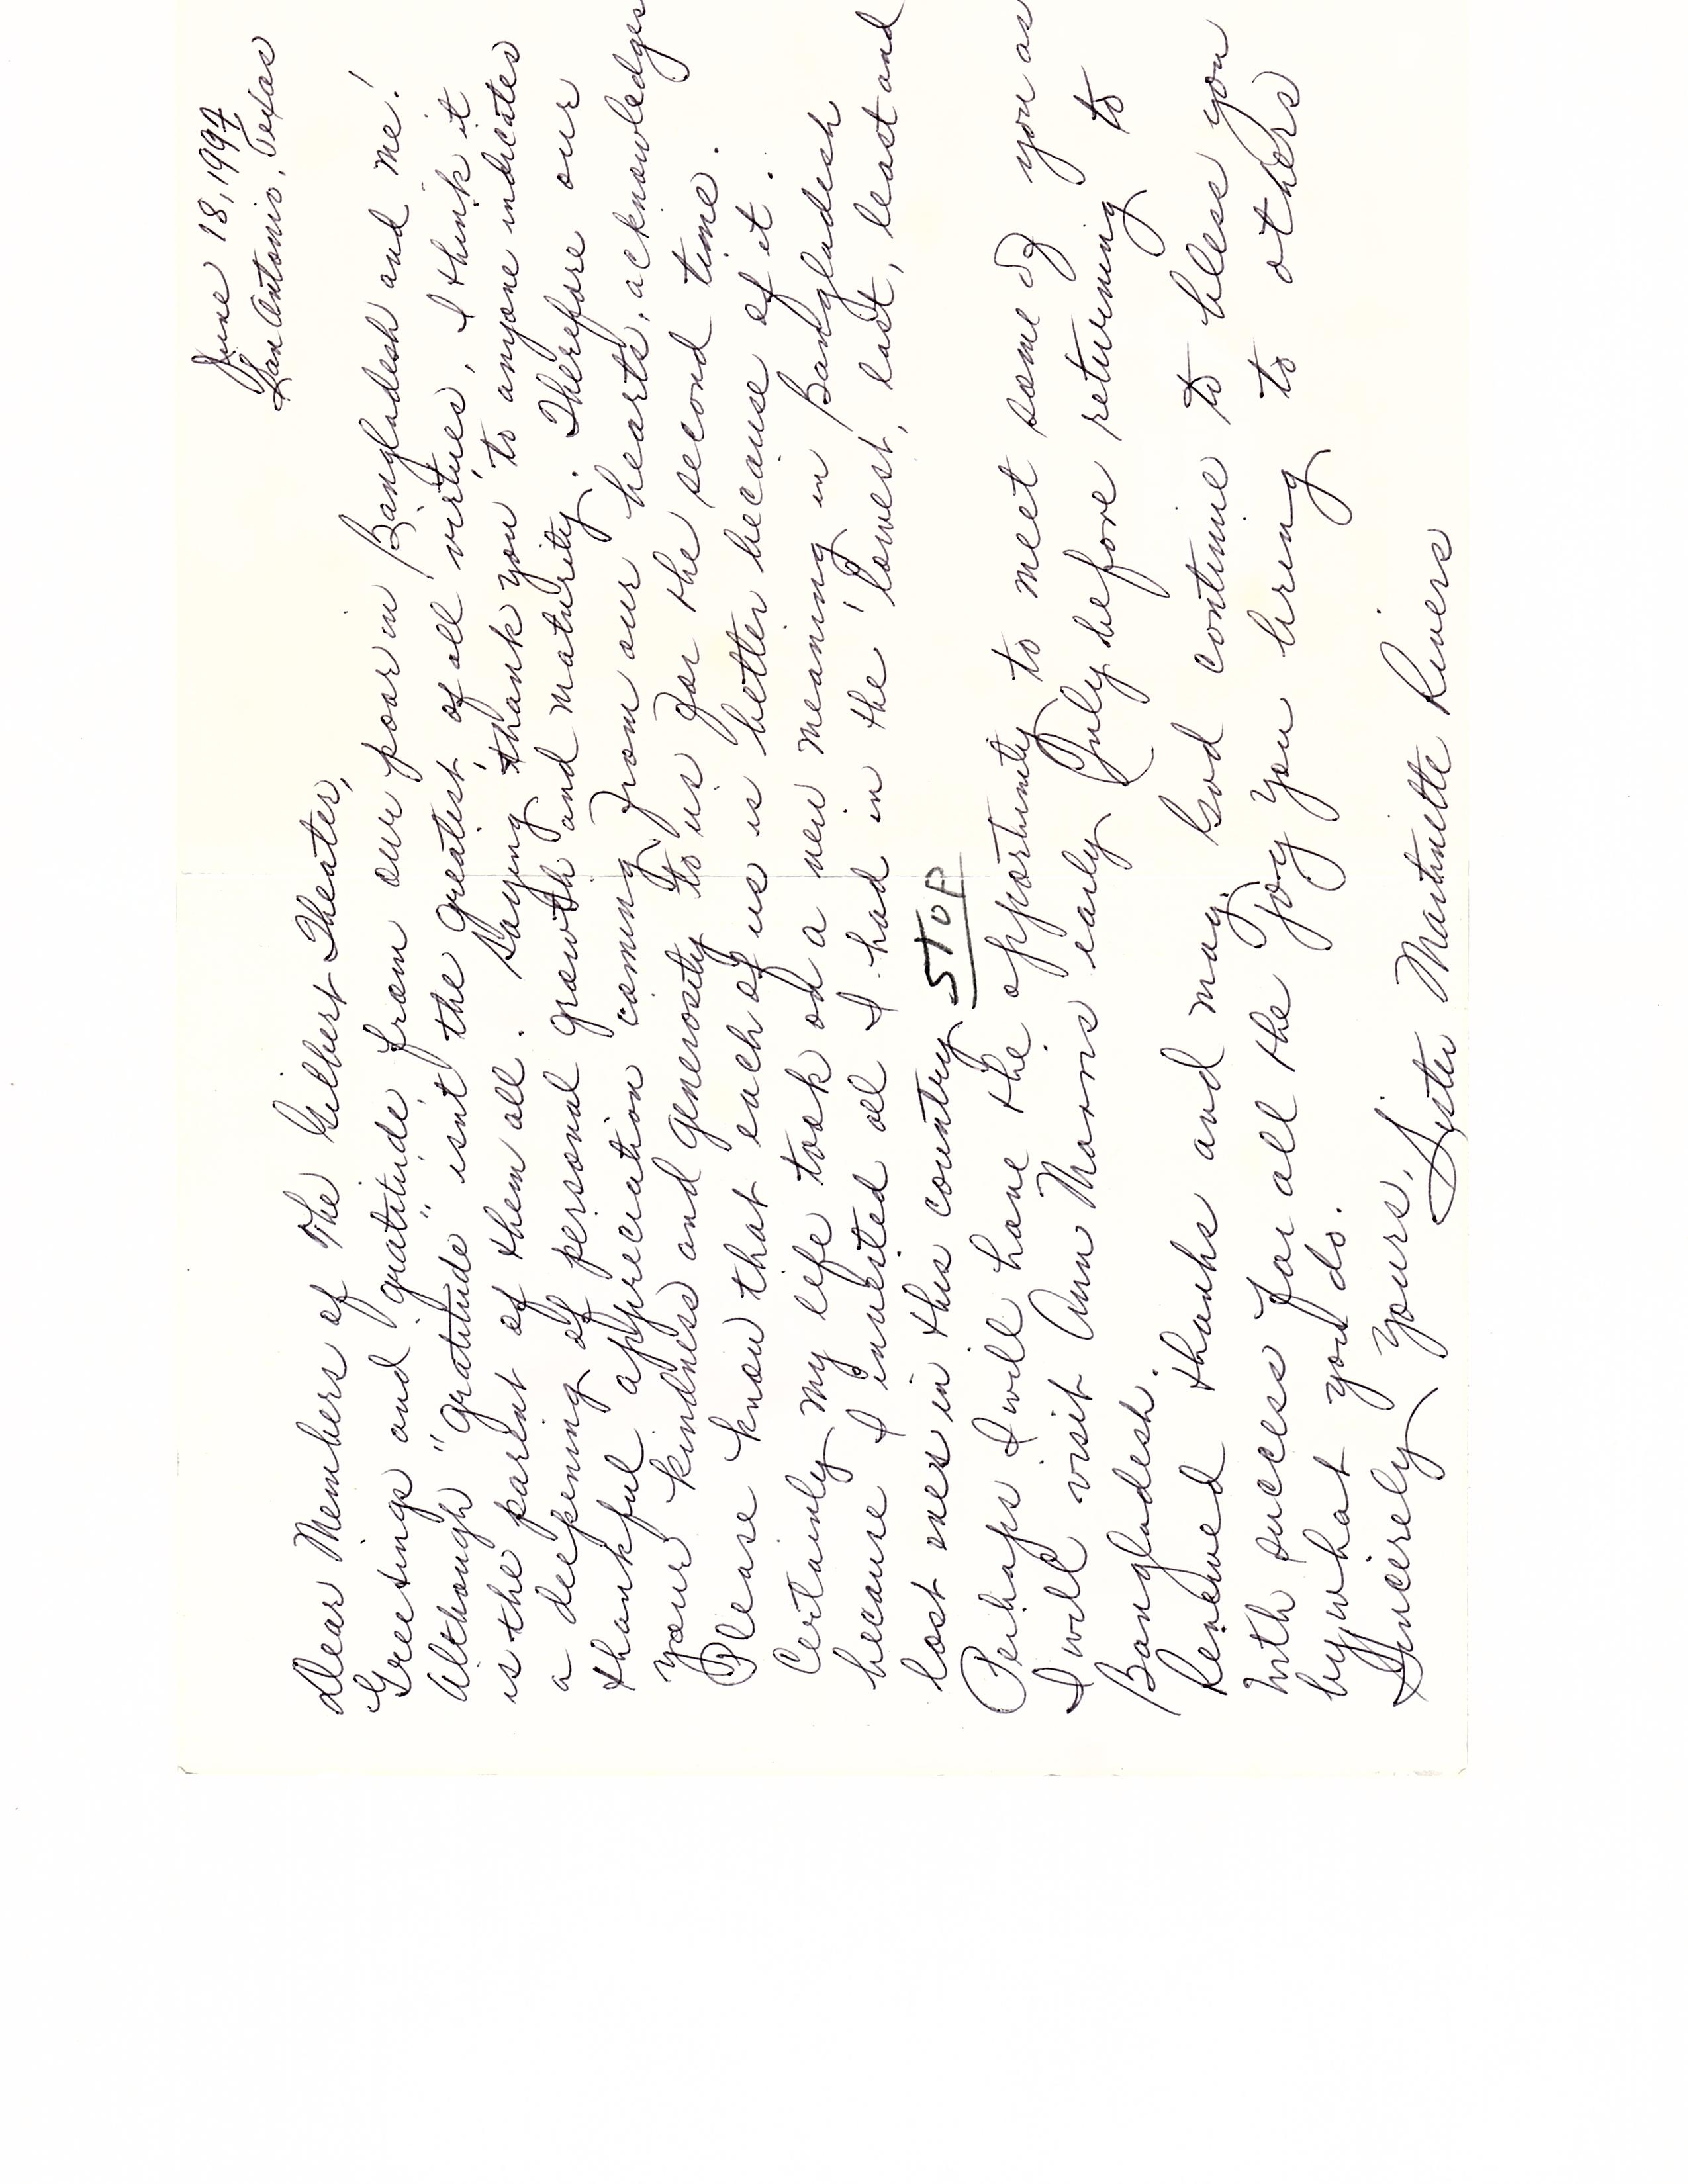 June 18, 1997
San Antonio, Texas
Dear Members of The Gilbert Theater,
Greetings and gratitude from our poor in Bangladesh and me!
Although "gratitude" isn't the greatest of all virtues, I think it
is the parent of them all. Saying 'thank you' to anyone indicates
a deepening of personal growth and maturity. Therefore our
thankful appreciation coming from our hearts, acknowledges
your kindness and generosity to us for the second time.
Please know that each of us is better because of it.
Certainly my life took on a new meaning in Bangladesh
because I invested all I had in the 'lowest, last, least and
lost ones in this country STOP
Perhaps I will have the opportunity to meet some of you as
I will visit Ann Morris early July before returning to
Bangladesh.
Renewed thanks and may God continue to bless you
with success for all the joy you bring to others
by what you do.
Sincerely yours,
Sister Martinette Rivers